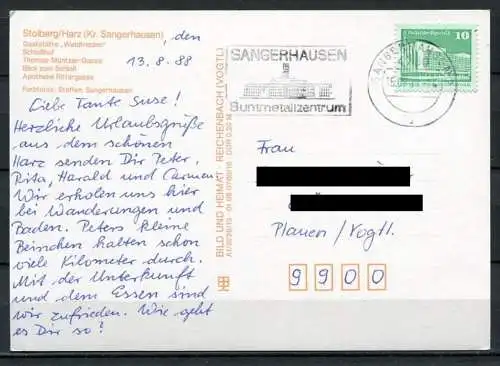 Stolberg/Harz (Kr. Sangerhausen)
Gaststätte „Waldfrieden"
Schloßhof
Thomas-Müntzer-Gasse
Blick zum Schloß
Apotheke Rittergasse
Farbfotos: Steffen, Sangerhausen
, den
13. 8. 88
Liebe Tante Suse!
Herzliche Urlaubsgrüße
aus dem schönen
Harz senden Dir Peter,
Rita, Harald und Carmen.
Wir erholen uns hier
bei Wanderungen und
Baden. Peters kleine
Beinchen halten schon
viele Kilometer durch.
Mit der Unterkunft
und dem Essen sind
wir zufrieden. Wie geht
es Dir so!
BILD UND HEIMAT REICHENBACH (VOGTL)
SANGERHAUSEN
Buntmetallzentrum
10
Frau
Plauen/Vogtl.
9900